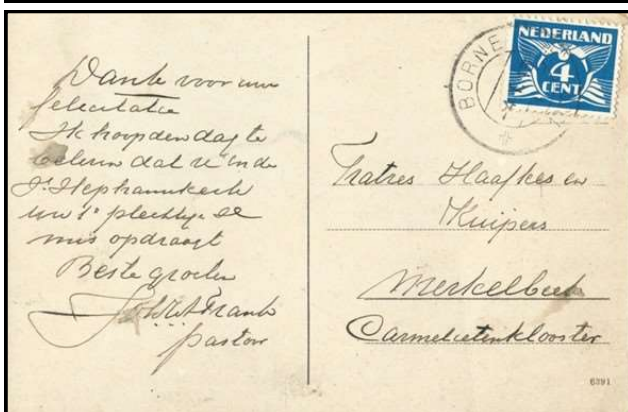 Dank voor uw
felicitatie
Ik hoop den dag te
beleven dat U in de
St Stephanuskerk
uw 1e plechtige H.
mis opdraagt
Beste groeten
Frank
pastoor
BORNE
NEDERLAND
4
CENT
Fratres Haafkes en
Kuipers
Merkelbeek
Carmelietenklooster
6391